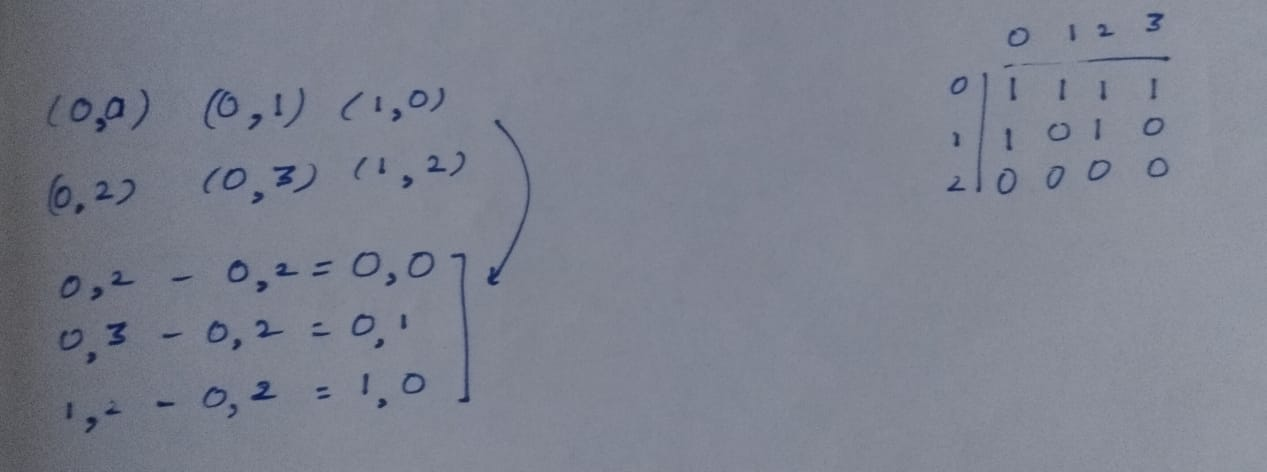 (0,0) (0,1) (1,0)
(0,2) (0,3) (1,2)
0,2 - 0,2 = 0,0
0,3 - 0,2 = 0,1
1,2 - 0,2 = 1,0
0 1 2 3
0 | 1 1 1 1
1 | 1 0 1 0
2 | 0 0 0 0